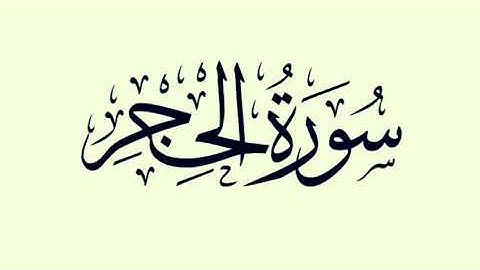 سُورَةُ الحِجرِ